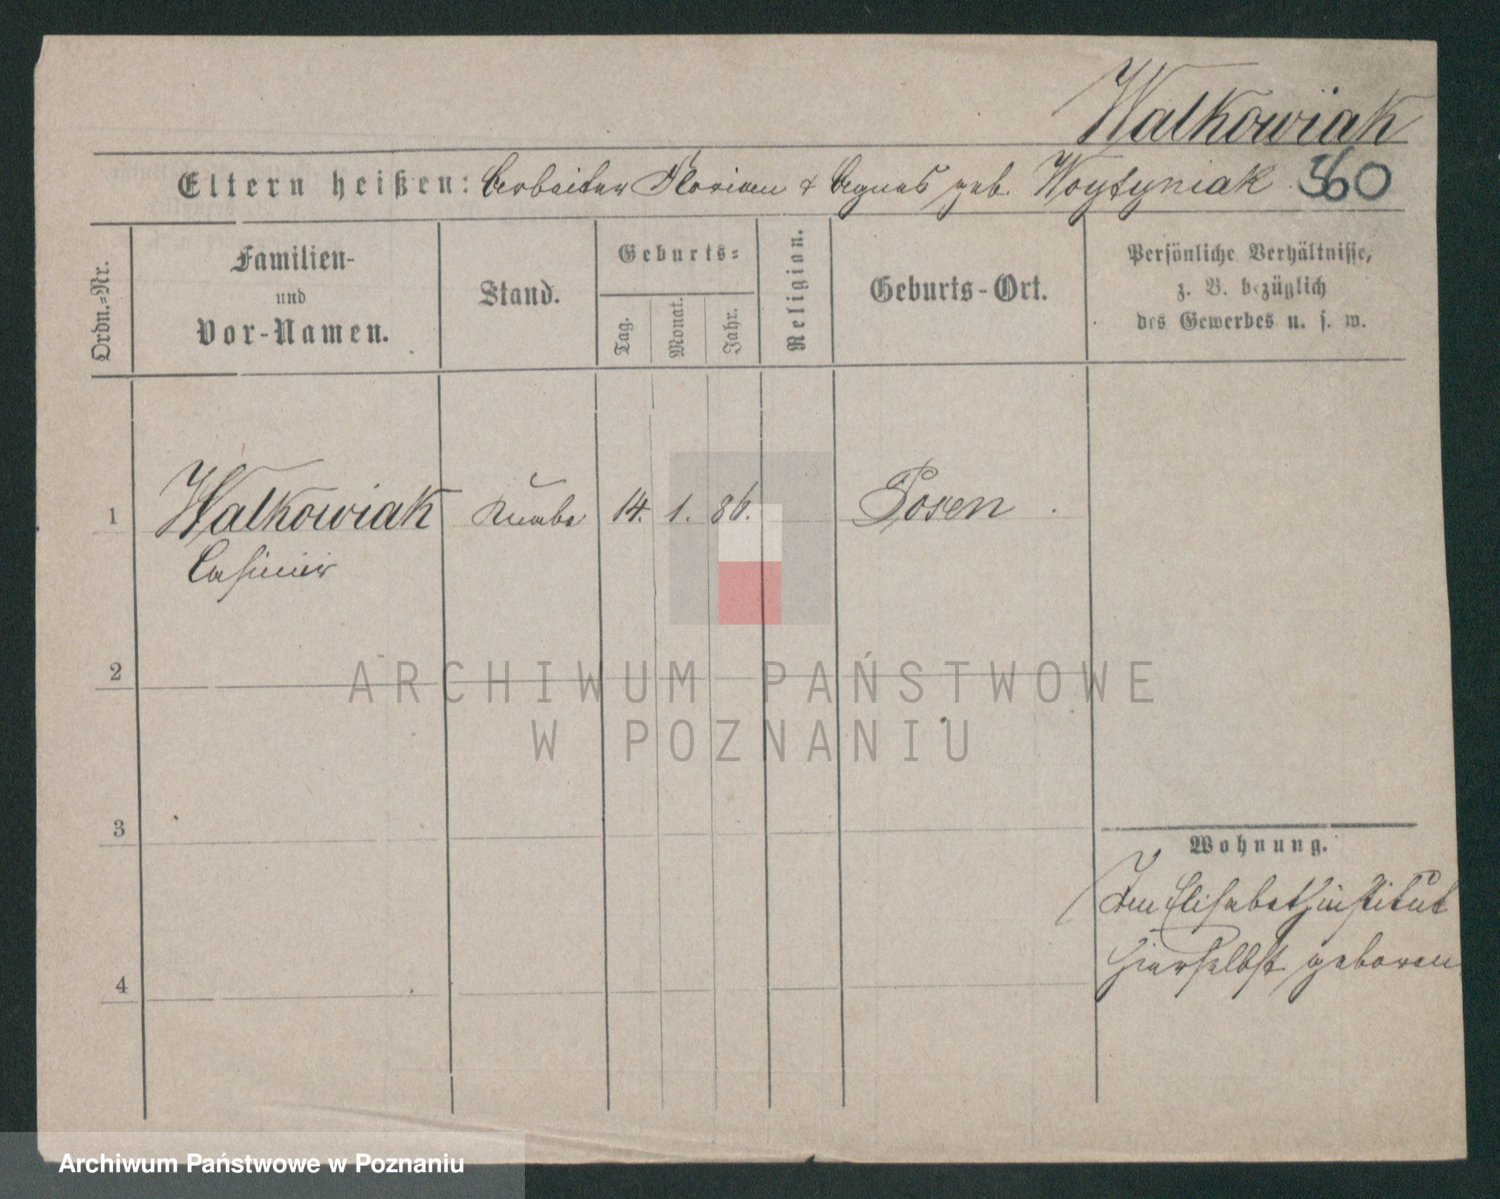 Walkowiak
Eltern heißen: Arbeiter Florian & Agnes geb. Woytyniak 360
Ordn.=Nr.
Familien-
und
Vor-Namen.
Stand.
Geburts=
Tag.
Monat.
Jahr.
Religion.
Geburts-Ort.
Persönliche Verhältnisse,
z. B. bezüglich
des Gewerbes u. s. w.
1 Walkowiak Knabe 14. 1. 86. Posen.
Casimir
2
3
4
Wohnung.
Im Elisabethinstitut
hierselbst geboren
ARCHIWUM PAŃSTWOWE
W POZNANIU
Archiwum Państwowe w Poznaniu